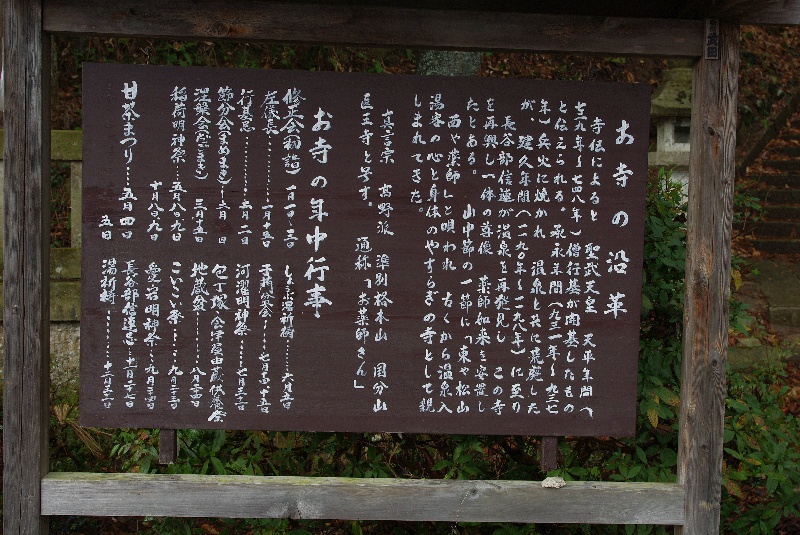 お寺の沿革
寺伝によると 聖武天皇 天平年間(
七三九年〜七四八年)僧行基が開基したもの
と伝えられる。承永年間(九三一年〜九三七
年)兵火に焼かれ 温泉と共に荒廃した
が、建久年間(一一九〇年〜一一九八年)に至り
長谷部信連が温泉を再発見し この寺
を再興し一体の尊像 薬師如来を安置し
たとある。 山中節の一節に「東や松山
西や薬師」と唄われ 古くから温泉入
湯客の心と身体のやすらぎの寺として親
しまれてきた。
真言宗 高野派 準別格本山 国分山
医王寺と号す。 通称「お薬師さん」
お寺の年中行事
修正会(初詣) 一月一日〜三日
左儀長……一月十五日
行基忌……二月二日
節分会(まめまき)…二月 日
涅槃会(だごまき) 三月十五日
稲荷明神祭…五月八〜九日
十月八〜九日
甘茶まつり…五月四日
五日
しょうぶ湯祈祷……六月五日
般若会……七月 十五日
河濯明神祭……七月三十日
包丁塚、会津屋由蔵供養祭
地蔵祭……八月二十四日
こいこい祭……九月二十三日
愛宕明神祭……九月二十四日
長谷部信連忌…十月二十七日
湯祈祷…十二月三十一日